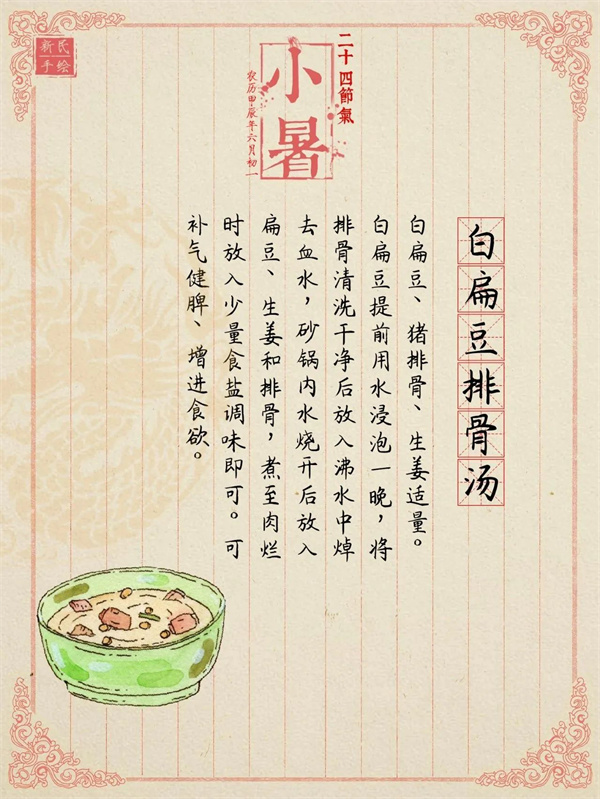 新民
手绘
二十四節氣
小暑
农历甲辰年六月初一
白扁豆排骨汤
白扁豆、猪排骨、生姜适量。
白扁豆提前用水浸泡一晚，将
排骨清洗干净后放入沸水中焯
去血水，砂锅内水烧开后放入
扁豆、生姜和排骨，煮至肉烂
时放入少量食盐调味即可。可
补气健脾、增进食欲。